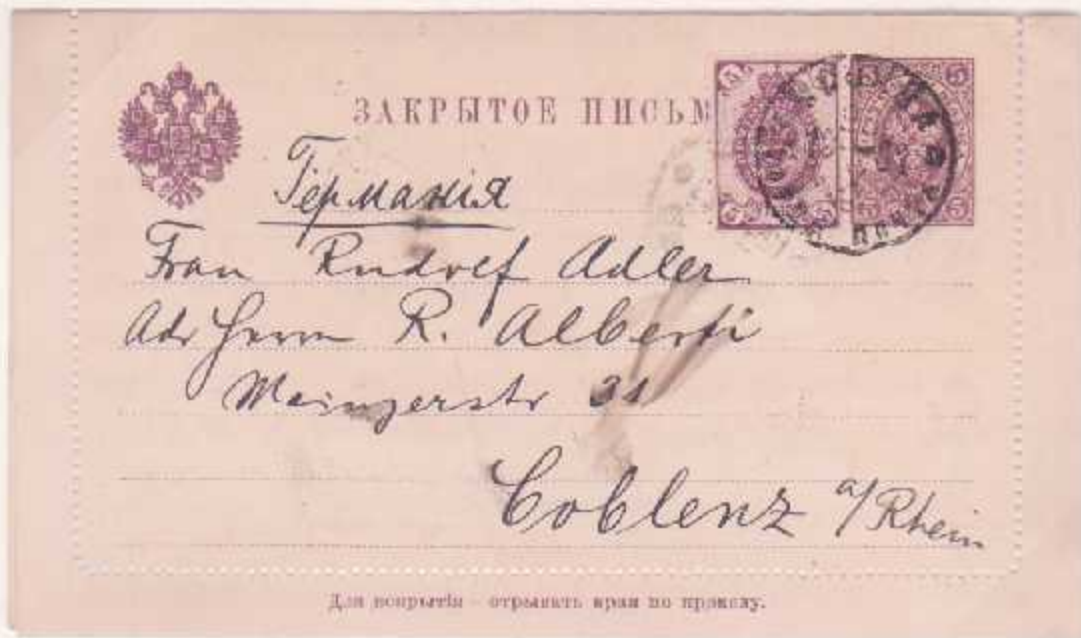 ЗАКРЫТОЕ ПИСЬМ
5 5
Германія
Frau Rudolf Adler
Adr Herrn R. Alberti
Mainzerstr 31
Coblenz a/Rhein
Для вскрытія - отрывать края по проколу.